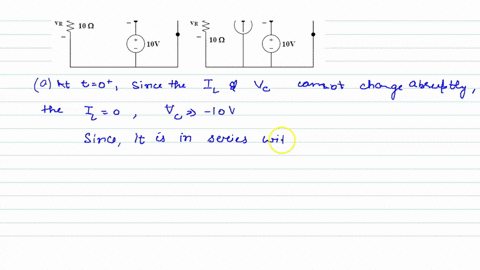 VR 10 Ω 10V VR 10 Ω 10V
(a) At t=0⁺, since the IL & VC cannot change abruptly,
the IL = 0, VC => -10V
Since, It is in series wit